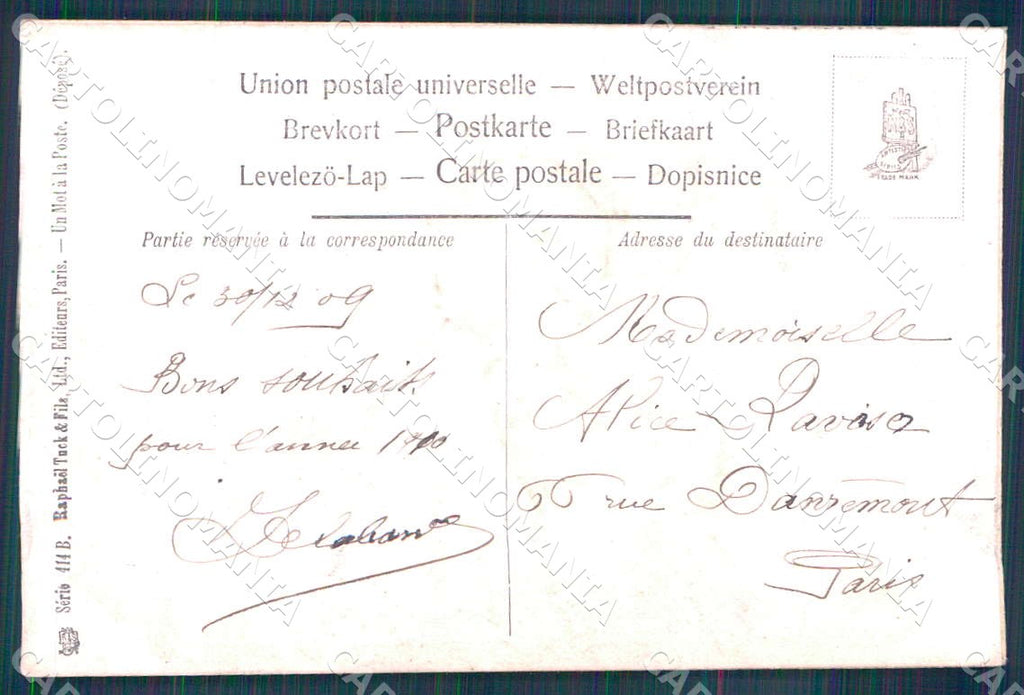 Union postale universelle — Weltpostverein
Brevkort — Postkarte — Briefkaart
Levelezö-Lap — Carte postale — Dopisnice
TRADE MARK
Partie réservée à la correspondance
Le 30/12 09
Bons souhaits
pour l'année 1910
Adresse du destinataire
Mademoiselle
Alice
rue Danrémont
Paris
Série 414 B. Raphaël Tuck & Fils, Ltd., Editeurs, Paris. — Un Mot à la Poste. (Déposé).
CARTOLINOMANIA